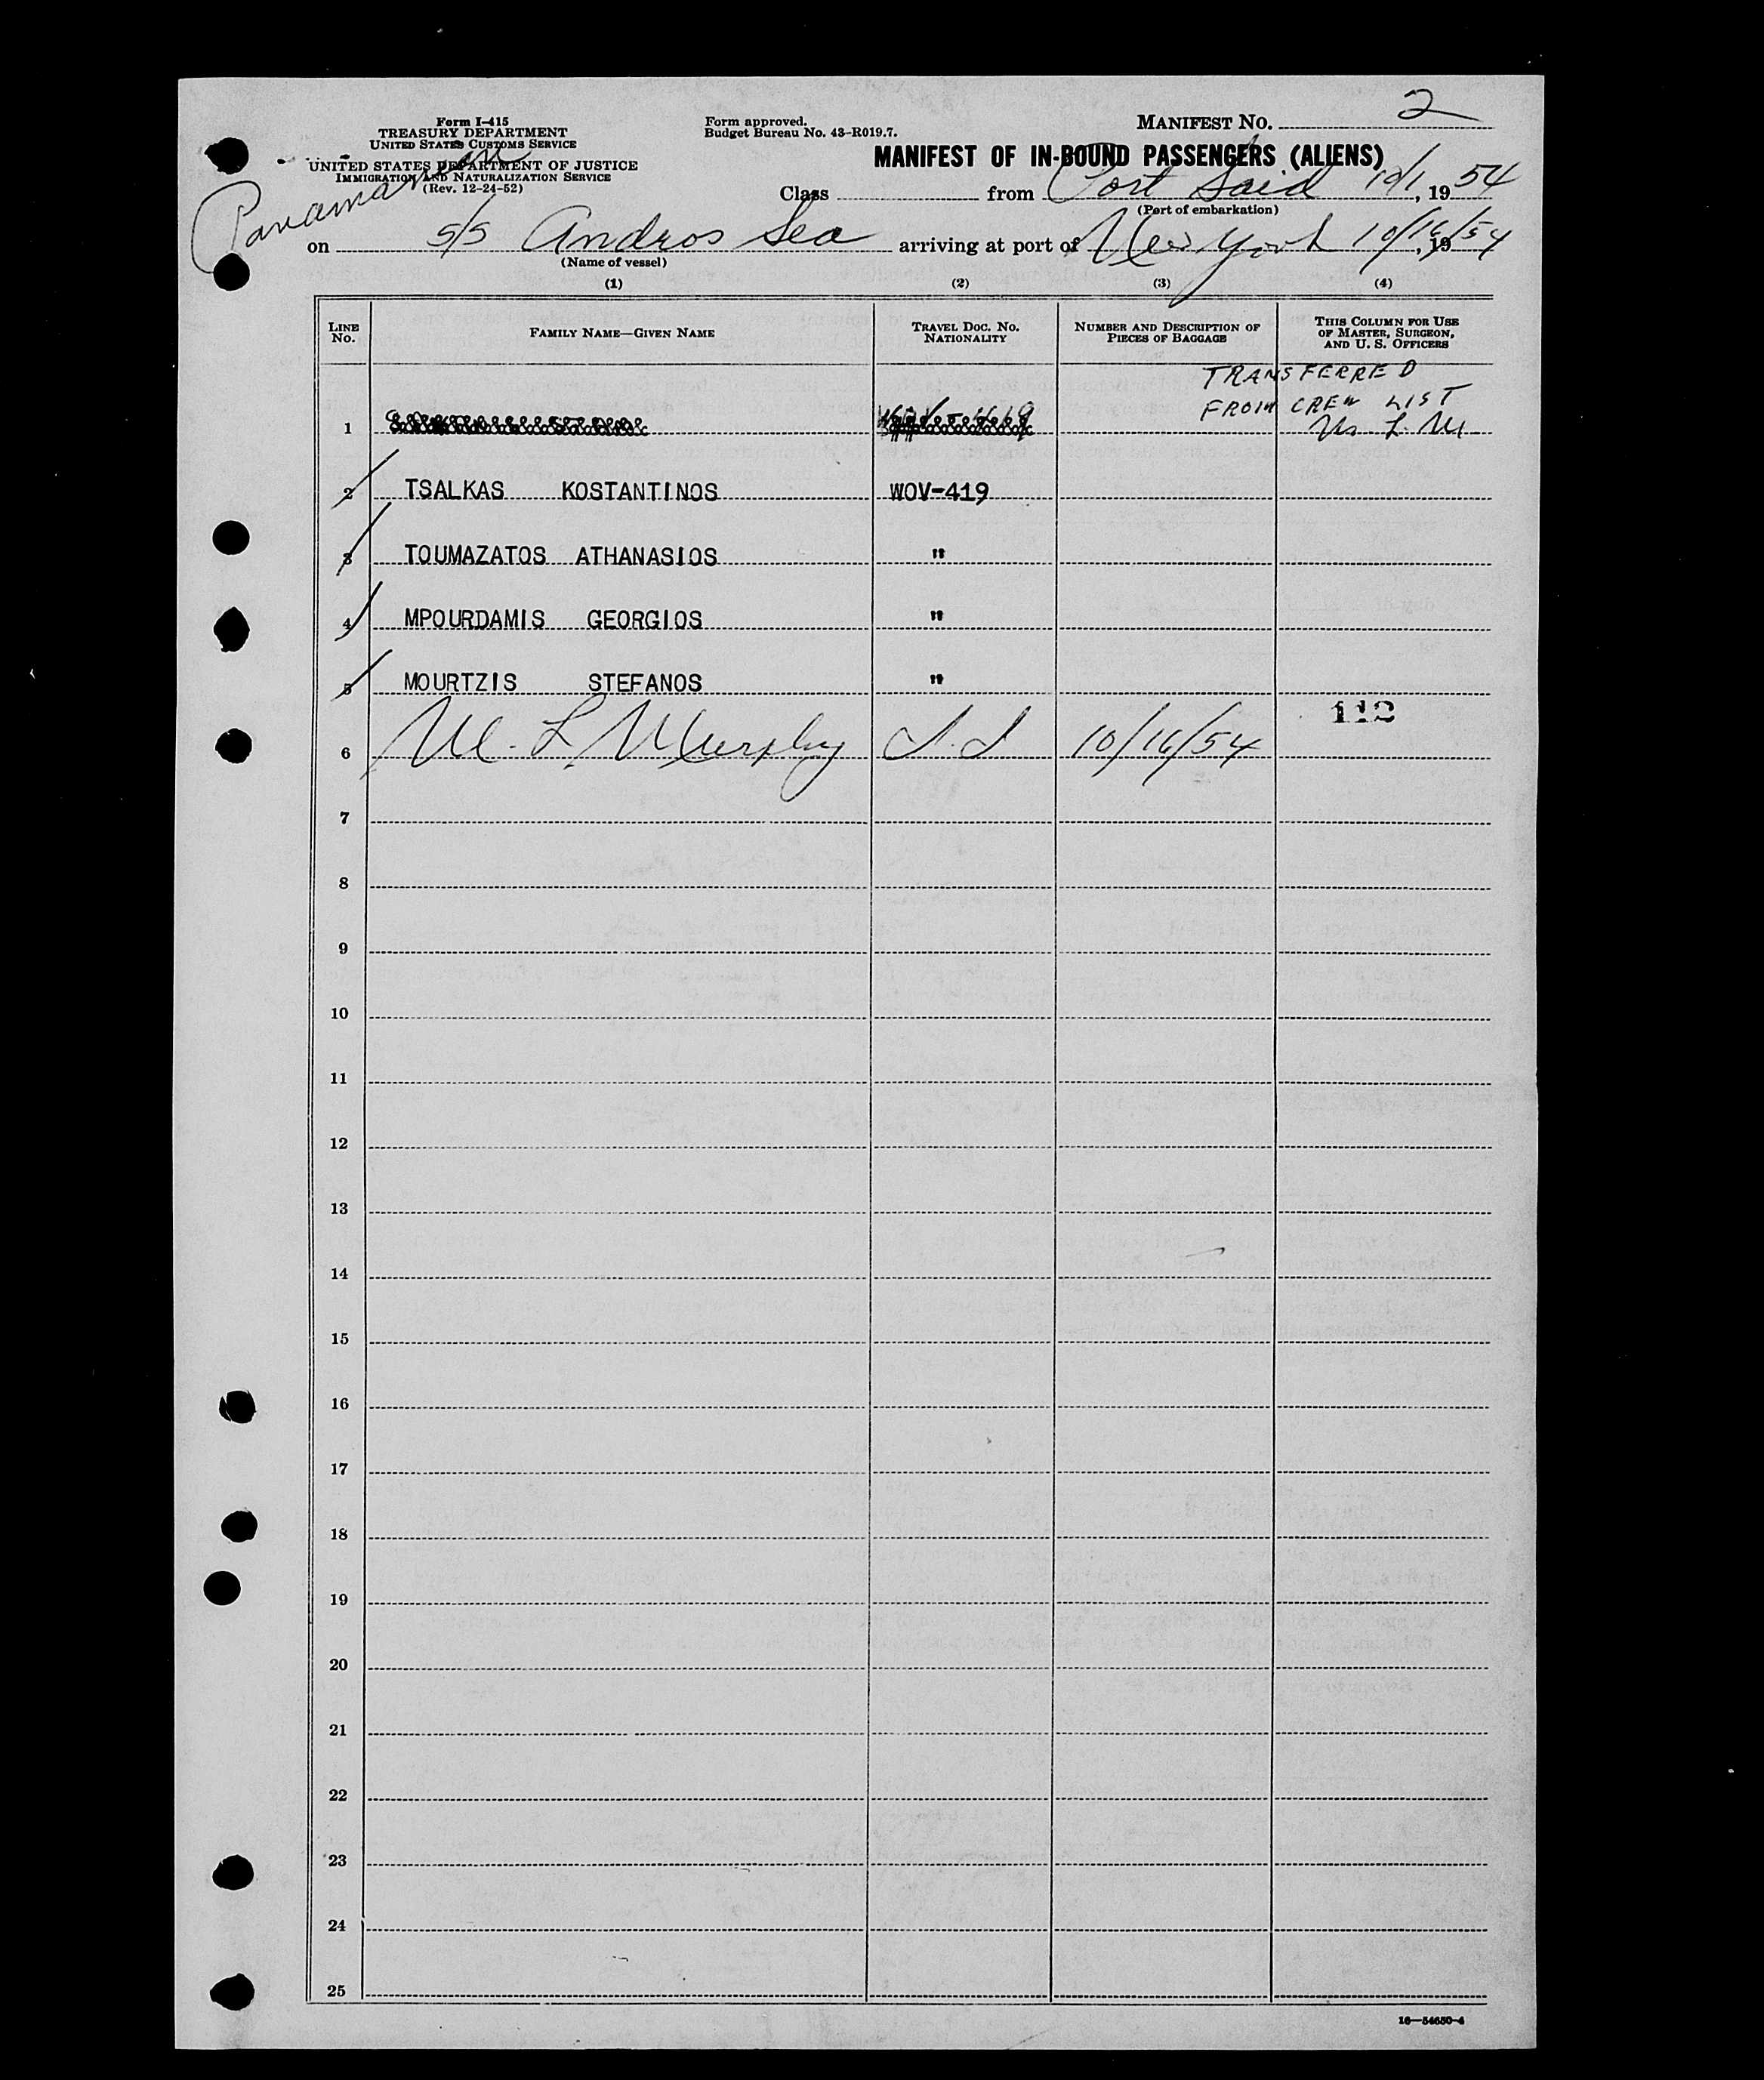 Form I-415
TREASURY DEPARTMENT
UNITED STATES CUSTOMS SERVICE
UNITED STATES DEPARTMENT OF JUSTICE
IMMIGRATION AND NATURALIZATION SERVICE
(Rev. 12-24-52)
Panamanian
Form approved.
Budget Bureau No. 43-R019.7.
MANIFEST NO. 2
MANIFEST OF IN-BOUND PASSENGERS (ALIENS)
Class from Port Said 10/1, 1954
(Port of embarkation)
on S/S Andros Sea arriving at port of New York 10/16/54, 19
(Name of vessel)
(1) (2) (3) (4)
LINE NO. FAMILY NAME—GIVEN NAME TRAVEL DOC. NO. NATIONALITY NUMBER AND DESCRIPTION OF PIECES OF BAGGAGE THIS COLUMN FOR USE OF MASTER, SURGEON, AND U. S. OFFICERS
TRANSFERRED
FROM CREW LIST
1 M L M
2 TSALKAS KOSTANTINOS WOV-419
3 TOUMAZATOS ATHANASIOS "
4 MPOURDAMIS GEORGIOS "
5 MOURTZIS STEFANOS "
112
6 M. L. Murphy 10/16/54
7
8
9
10
11
12
13
14
15
16
17
18
19
20
21
22
23
24
25
16—54650-4